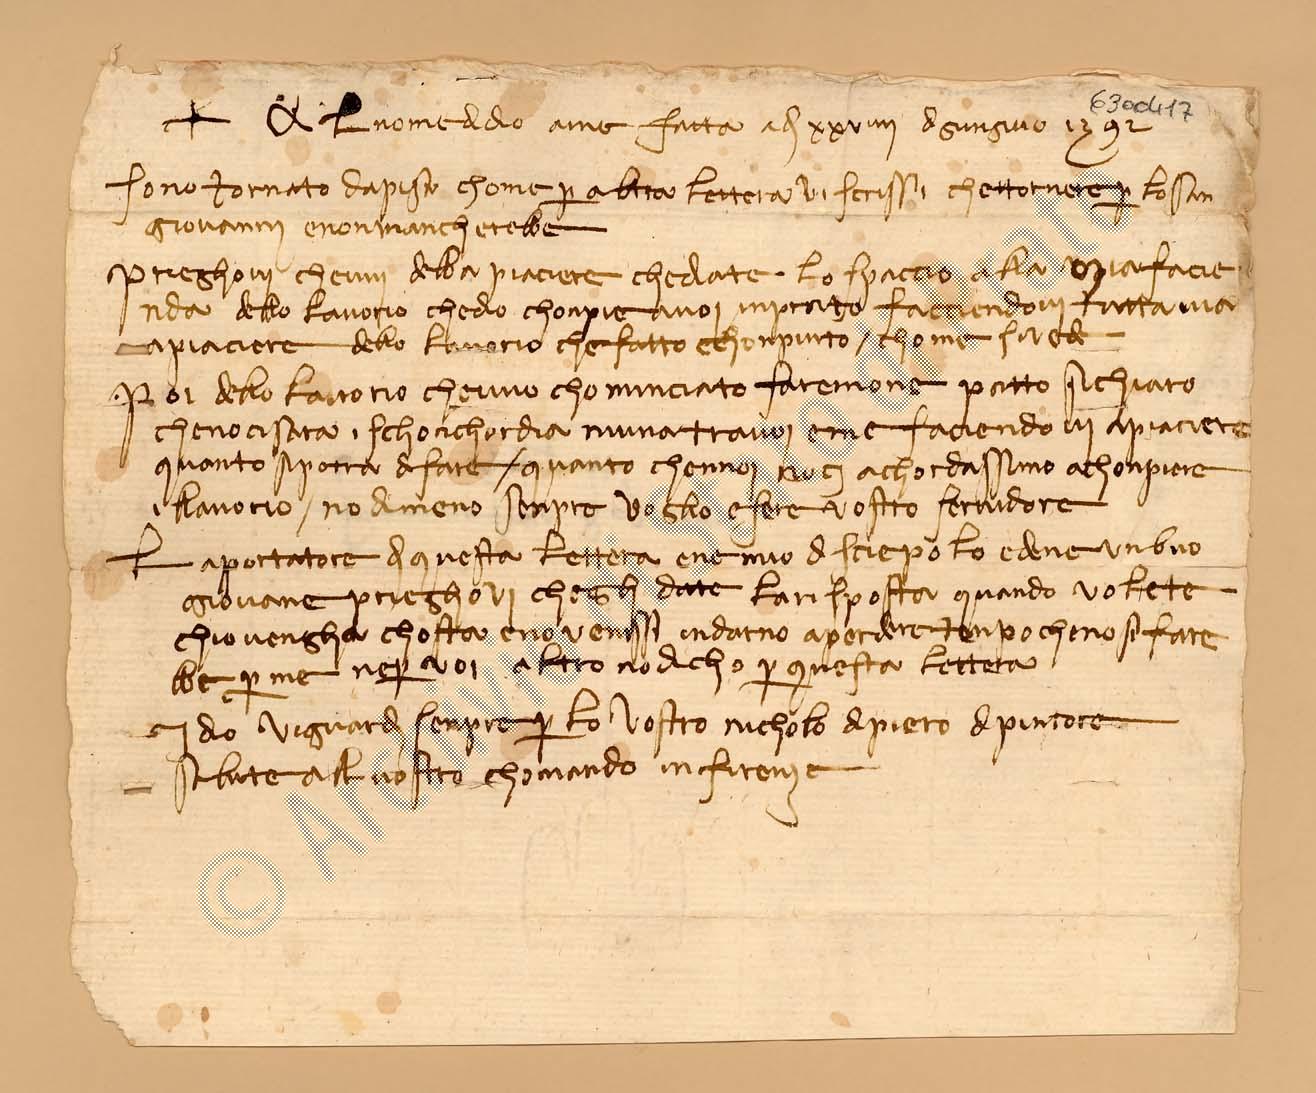 630041 17
+ Al nome di dio ame fatta adj xxviiii di gungnio 1392
sono tornato dapisa chome p altra lettera vi scrissi chettornere p lo san
giovannj enonmancherebbe
Prieghovi chevvi debba piaciere chediate lo spaccio alla mia facie
nda dello lavorio chedo chonpie avoi inprato facciendovi tuttavia
apiaciere dello lavorio chefatto echonpiuto / chome si vede
Poi dello lavorio chevvo chominciato faremone patto si chiaro
chenocisara ischocichordia niuna travoi eme faciendo vi apiaciere
quanto sipotra di fare / quanto chennoi noci achordassimo achonpiere
illavorio / nodimeno senpre voglio essere vostro servidore
Laportatore di questa lettera ene mio discepolo edene unbuo
giovane prieghovi cheglj diate larisposta quando volete
chiovengha chosta enovenissi indarno aperdere tenpo cheno si fare
bbe p me nep voi altro nodicho p questa lettera
Idio viguardj senpre p lo vostro nicholo dipiero dipintore
salute al vostro chomando infirenze
© Archivio di Stato di Prato